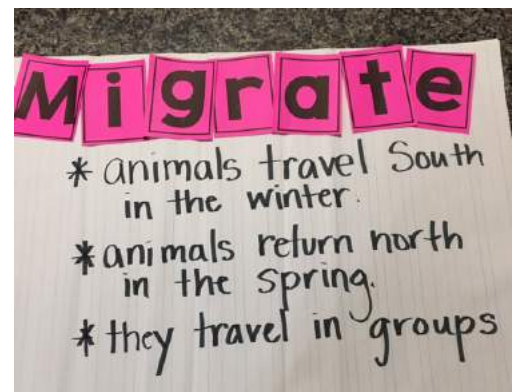 Migrate
* animals travel South
in the winter.
* animals return north
in the spring.
* they travel in groups